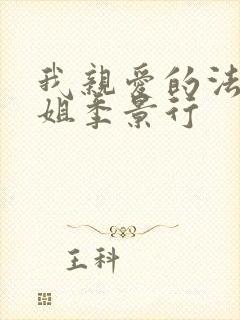 我親愛的法
姐季景行
王科